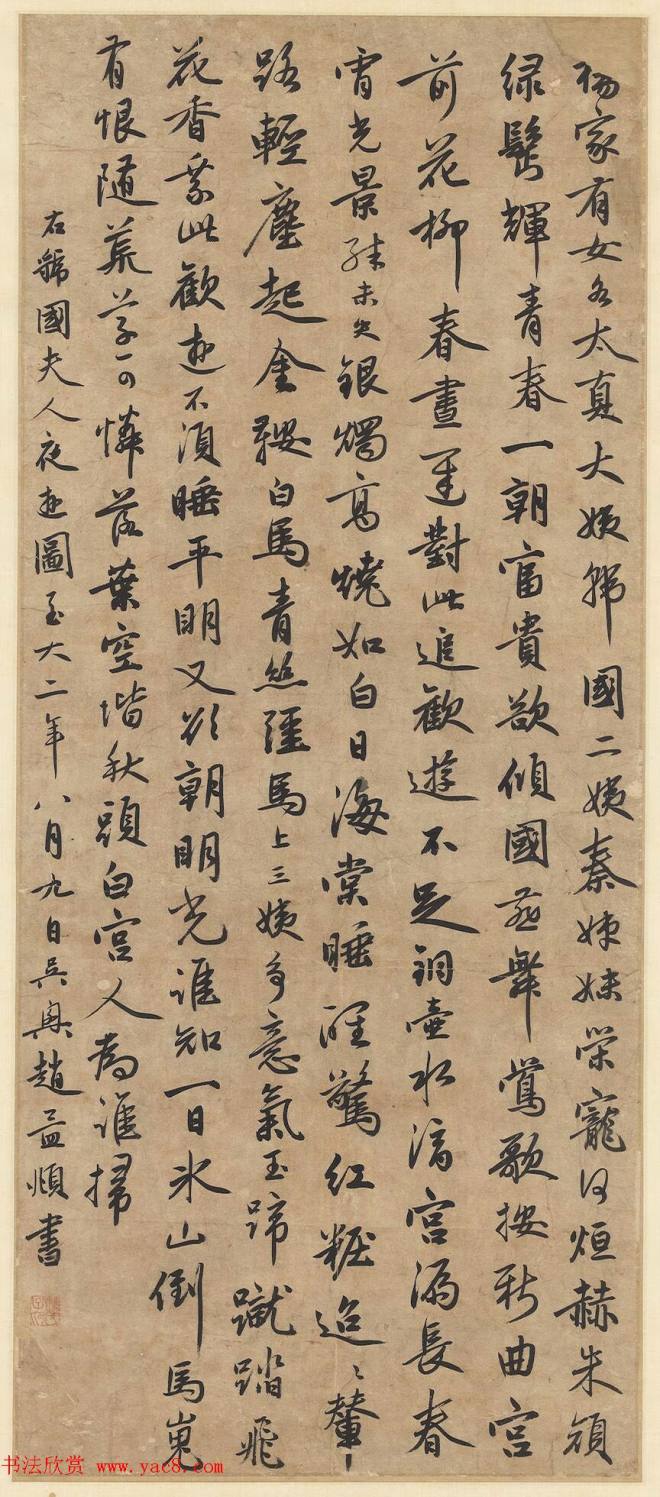 楊家有女名太真大姨虢國二姨秦姊妹榮寵何烜赫朱顔
緑鬢輝青春一朝富貴欲傾國燕舞鶯歌按新曲宮
前花柳春晝遲對此追歡遊不足銅壺水滴宮漏長春
宵光景殊未央銀燭高燒如白日海棠睡醒驚紅粧迢〻輦
路輕塵起金鞍白馬青絲韁馬上三姨多意氣玉蹄蹴踏飛
花香乘此歡遊不須睡平明又欲朝明光誰知一日冰山倒馬嵬
有恨隨荒草可憐落葉空階秋頭白宮人為誰掃
右虢國夫人夜遊圖至大二年八月九日吳興趙孟頫書
书法欣赏 www.yac8.com